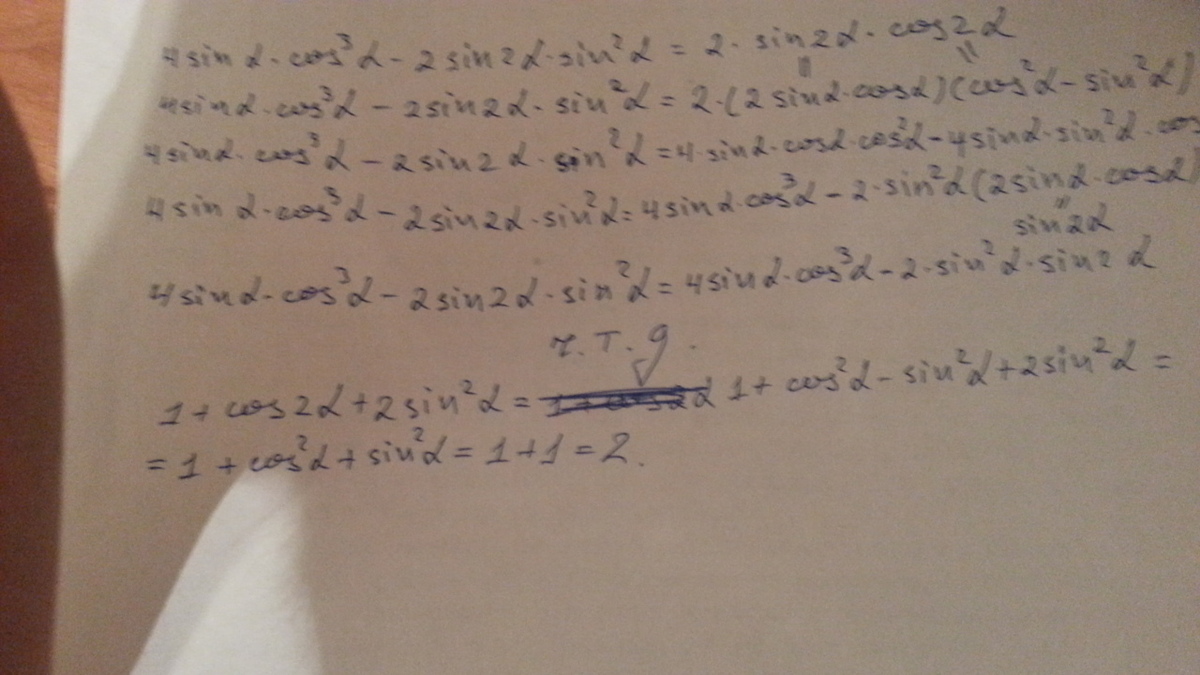 4 sin α · cos³α − 2 sin 2α · sin²α = 2 · sin 2α · cos 2α
4 sin α · cos³α − 2 sin 2α · sin²α = 2 · (2 sin α · cos α)(cos²α − sin²α)
4 sin α · cos³α − 2 sin 2α · sin²α = 4 · sin α · cos α · cos²α − 4 sin α · sin²α · cos
4 sin α · cos³α − 2 sin 2α · sin²α = 4 sin α · cos³α − 2 · sin²α (2 sin α · cos α)
sin 2α
4 sin α · cos³α − 2 sin 2α · sin²α = 4 sin α · cos³α − 2 · sin²α · sin 2α
ч. т. д.
1 + cos 2α + 2 sin²α = 1 + cos²α − sin²α + 2 sin²α =
= 1 + cos²α + sin²α = 1 + 1 = 2.